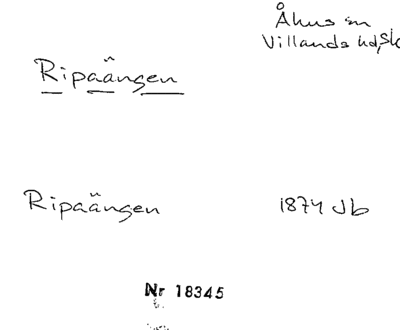 Åhus sn
Villands hd, Sk
Ripaängen
Ripaängen 1874 Jb
Nr 18345